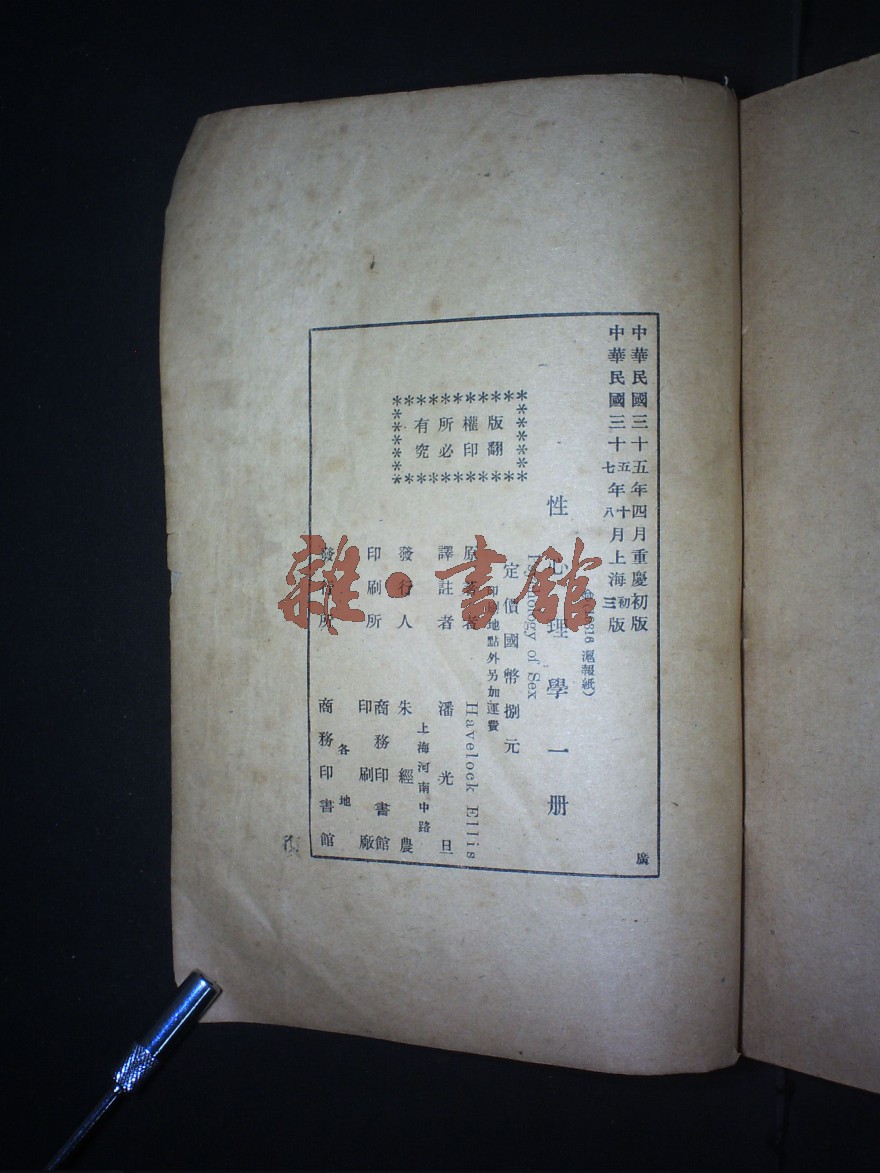 中華民國三十五年四月重慶初版
中華民國三十五年十月上海初版
七 八 三
(滬報紙)
性心理學一册
Psychology of Sex
定價國幣捌元
印刷地點外另加運費
版權所有
翻印必究
原著者 Havelock Ellis
譯註者 潘光旦
上海河南中路
發行人 朱經農
印刷所 商務印書館印刷廠
各地
發行所 商務印書館
廣
雜·書館